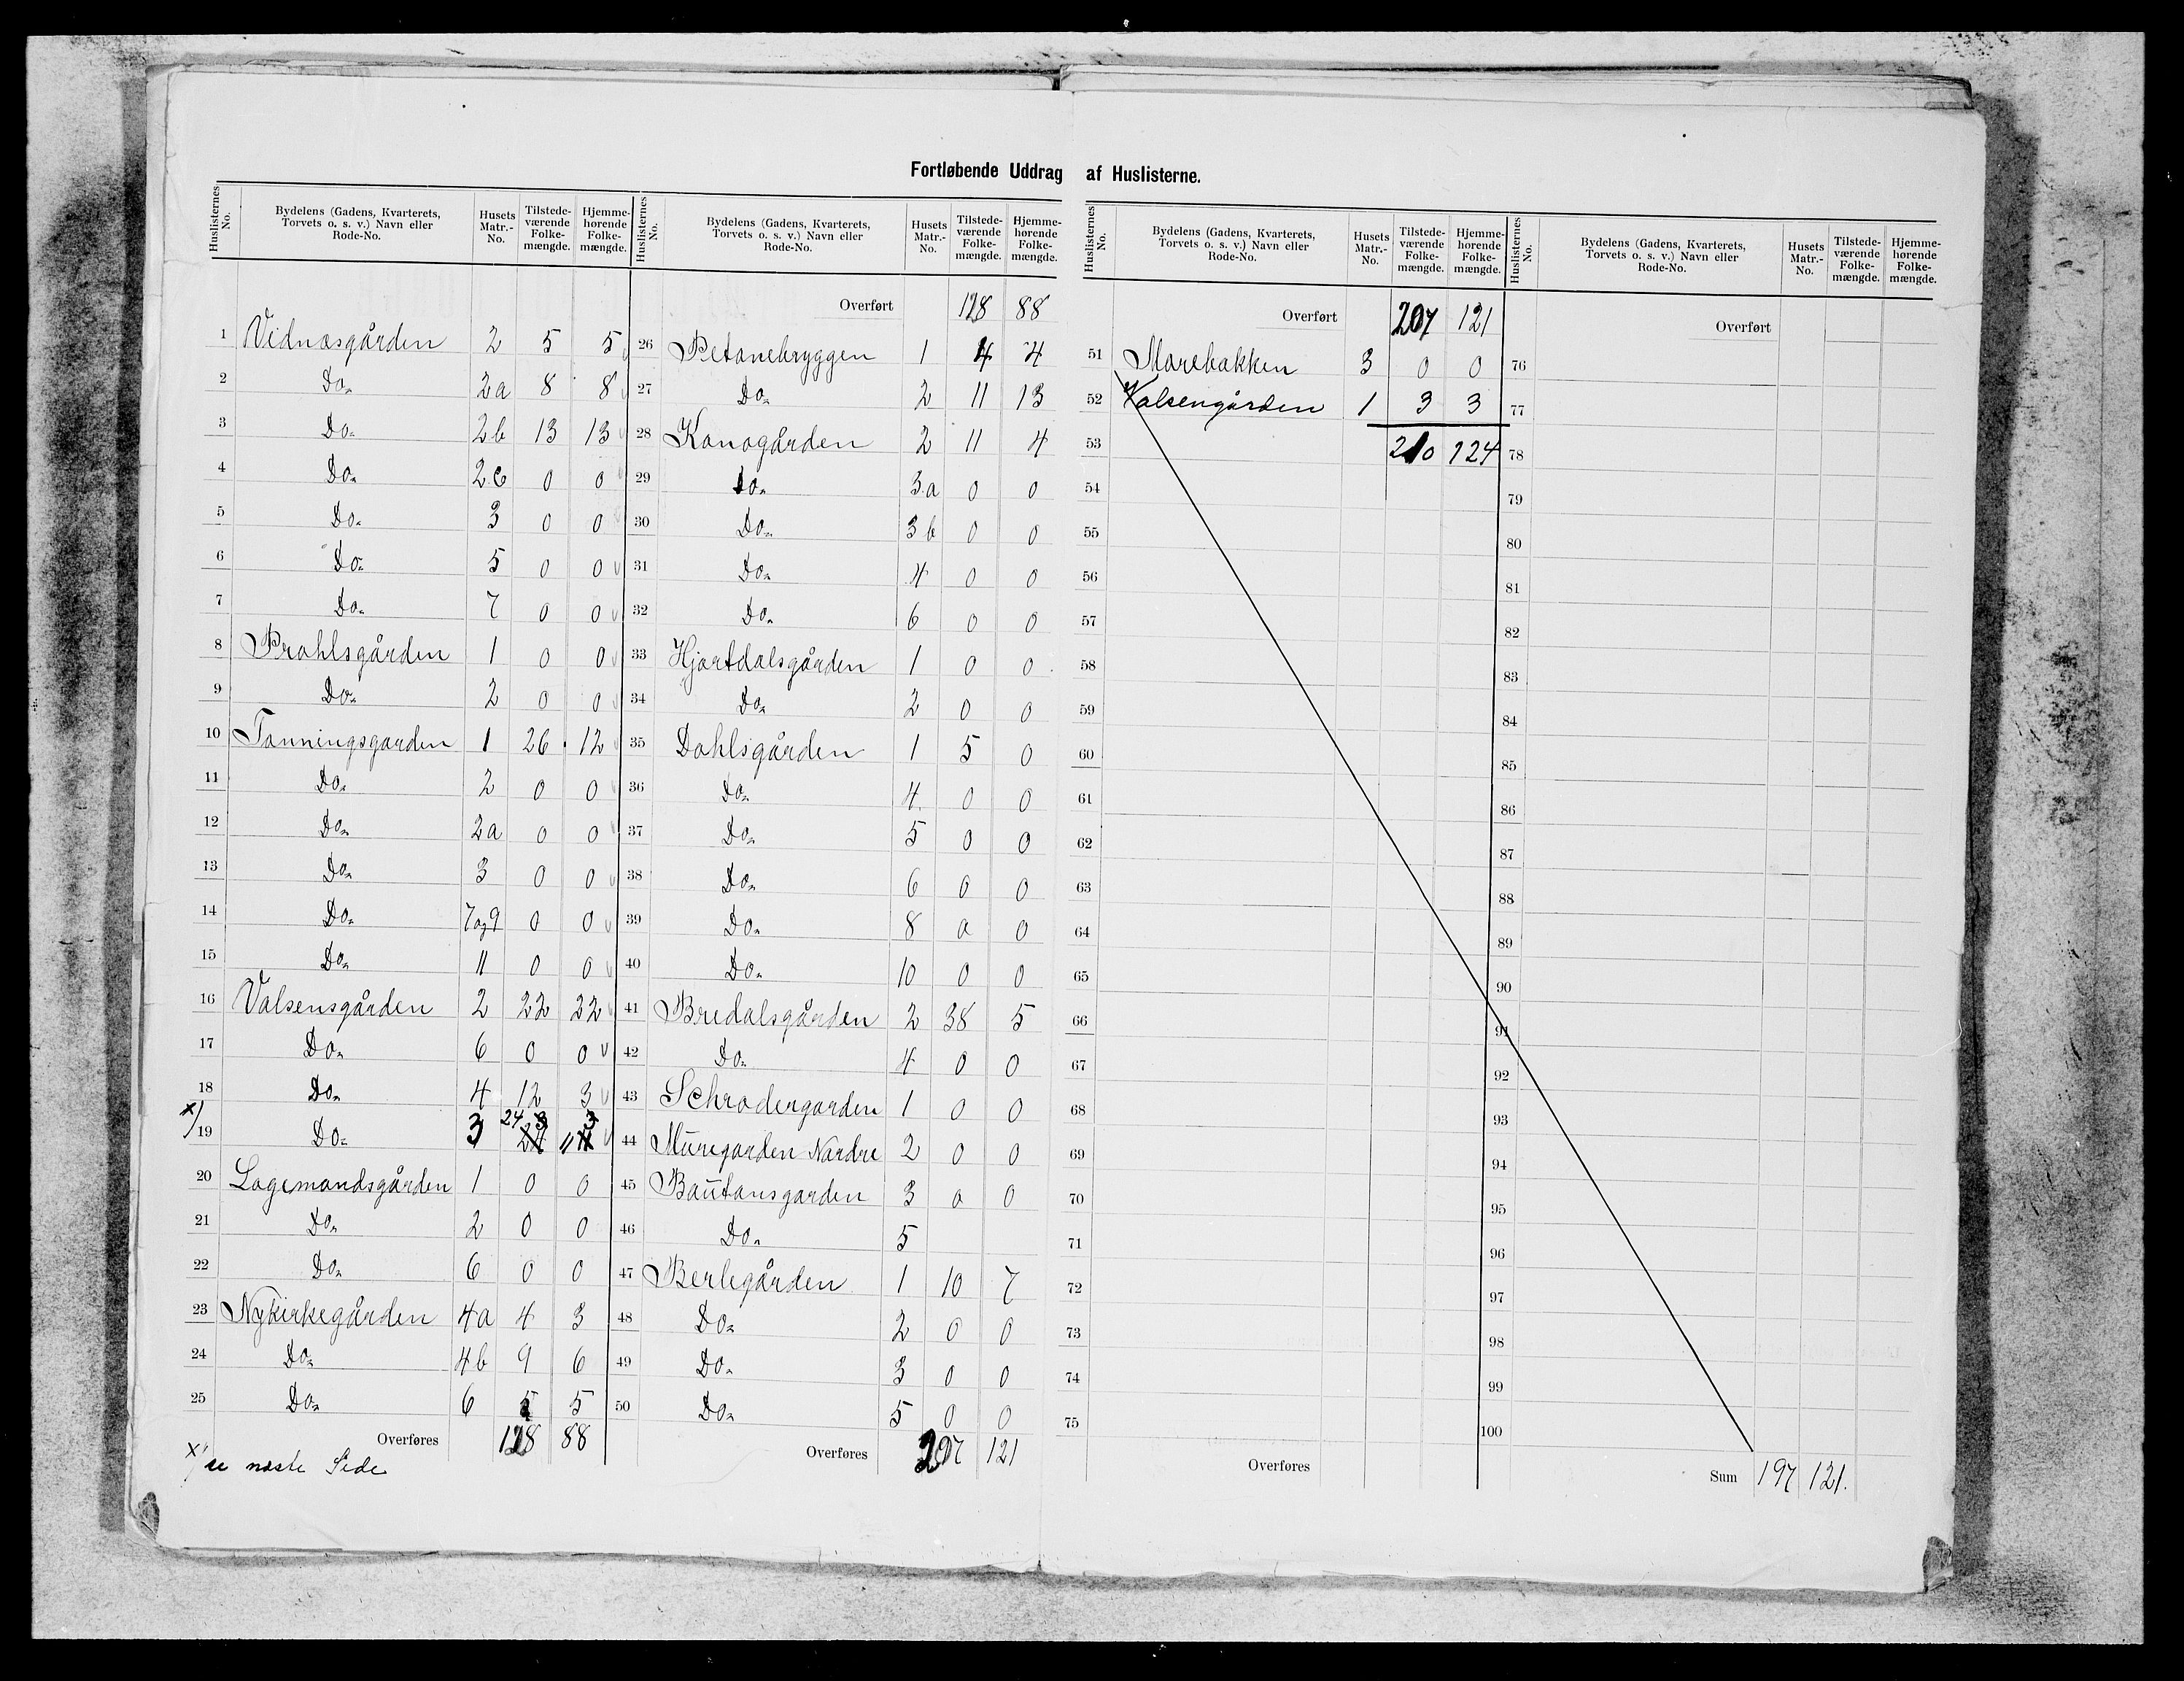 Fortløbende Uddrag af Huslisterne.
Huslisternes No. Bydelens (Gadens, Kvarterets, Torvets o. s. v.) Navn eller Rode-No. Husets Matr.-No. Tilstedeværende Folkemængde. Hjemmehørende Folkemængde.
1 Vidnæsgården 2 5 5
2 Do. 2a 8 8
3 Do. 2b 13 13
4 Do. 2c 0 0
5 Do. 3 0 0
6 Do. 5 0 0
7 Do. 7 0 0
8 Prahlsgården 1 0 0
9 Do. 2 0 0
10 Tanningsgarden 1 26 12
11 Do. 2 0 0
12 Do. 2a 0 0
13 Do. 3 0 0
14 Do. 7og9 0 0
15 Do. 11 0 0
16 Valsensgården 2 22 22
17 Do. 6 0 0
18 Do. 4 12 3
x) 19 Do. 3 24 11
20 Lagemandsgården 1 0 0
21 Do. 2 0 0
22 Do. 6 0 0
23 Nykirkegården 4a 4 3
24 Do. 4b 9 6
25 Do. 6 5 5
Overføres 128 88
x) se næste Side
Huslisternes No. Bydelens (Gadens, Kvarterets, Torvets o. s. v.) Navn eller Rode-No. Husets Matr.-No. Tilstedeværende Folkemængde. Hjemmehørende Folkemængde.
Overført 128 88
26 Petanebryggen 1 4 4
27 Do. 2 11 13
28 Kanogården 2 11 4
29 Do. 3a 0 0
30 Do. 3b 0 0
31 Do. 4 0 0
32 Do. 6 0 0
33 Hjortdalsgården 1 0 0
34 Do. 2 0 0
35 Dahlsgården 1 5 0
36 Do. 4 0 0
37 Do. 5 0 0
38 Do. 6 0 0
39 Do. 8 0 0
40 Do. 10 0 0
41 Bredalsgården 2 38 5
42 Do. 4 0 0
43 Schrodergarden 1 0 0
44 Muregarden Nordre 2 0 0
45 Bautansgarden 3 0 0
46 Do. 5
47 Berlegården 1 10 7
48 Do. 2 0 0
49 Do. 3 0 0
50 Do. 5 0 0
Overføres 207 121
Huslisternes No. Bydelens (Gadens, Kvarterets, Torvets o. s. v.) Navn eller Rode-No. Husets Matr.-No. Tilstedeværende Folkemængde. Hjemmehørende Folkemængde.
Overført 207 121
51 Marebakken 3 0 0
52 Valsengården 1 3 3
53 210 124
54
55
56
57
58
59
60
61
62
63
64
65
66
67
68
69
70
71
72
73
74
75
Overføres
Huslisternes No. Bydelens (Gadens, Kvarterets, Torvets o. s. v.) Navn eller Rode-No. Husets Matr.-No. Tilstedeværende Folkemængde. Hjemmehørende Folkemængde.
Overført
76
77
78
79
80
81
82
83
84
85
86
87
88
89
90
91
92
93
94
95
96
97
98
99
100
Sum 197 121.